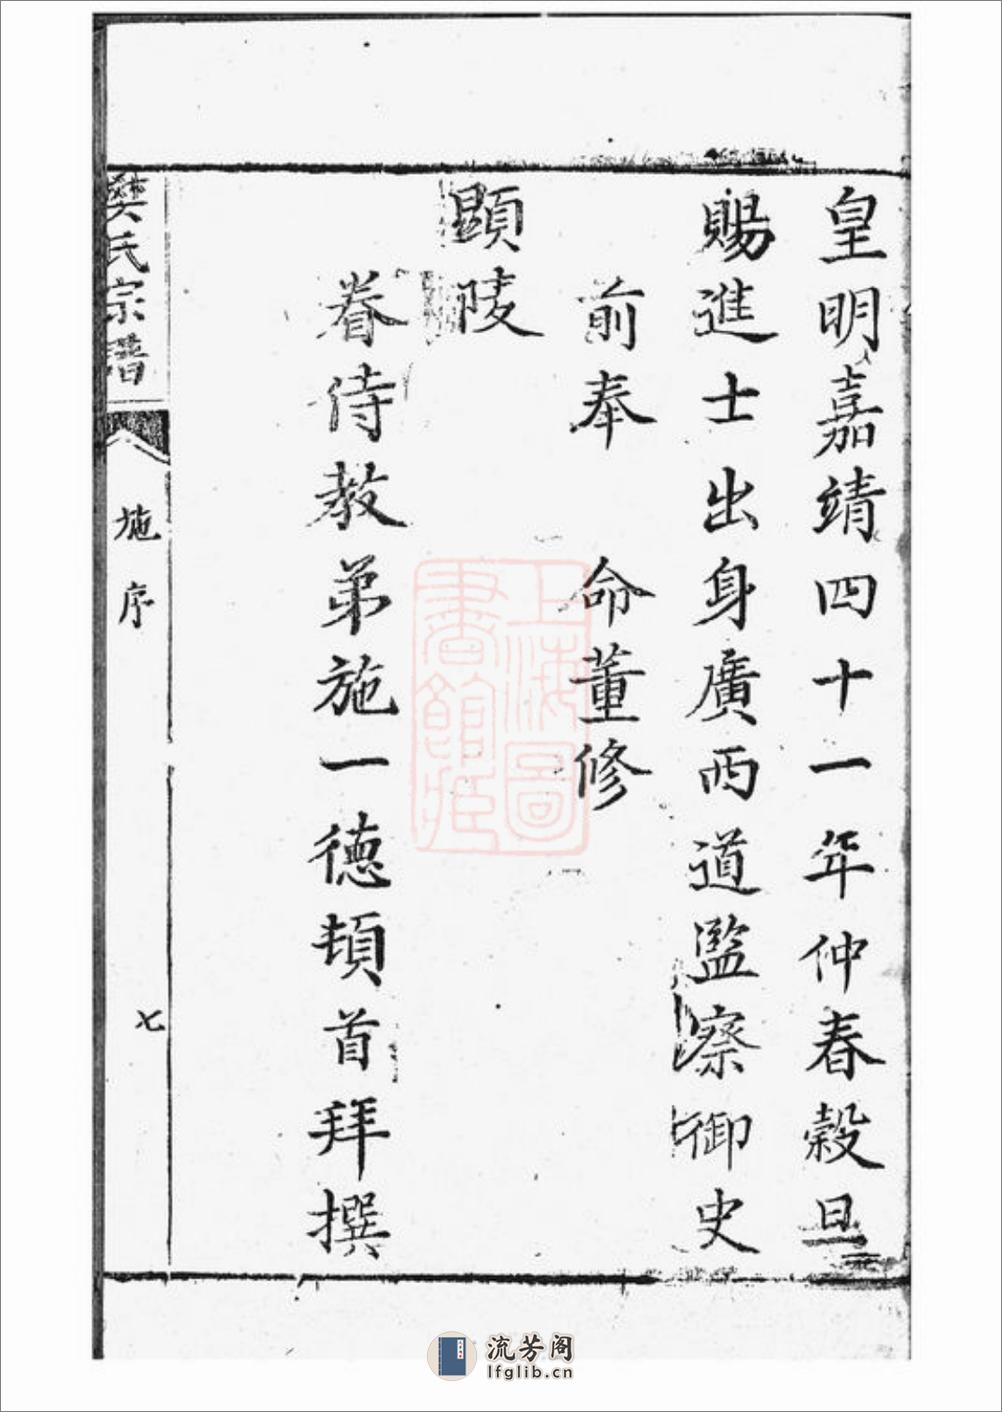 皇明嘉靖四十一年仲春穀旦
賜進士出身廣西道監察御史
前奉　命董修
顯陵
眷侍教弟施一德頓首拜撰
樊氏宗譜
施序
七
上海圖
書館藏
流芳阁
lfglib.cn